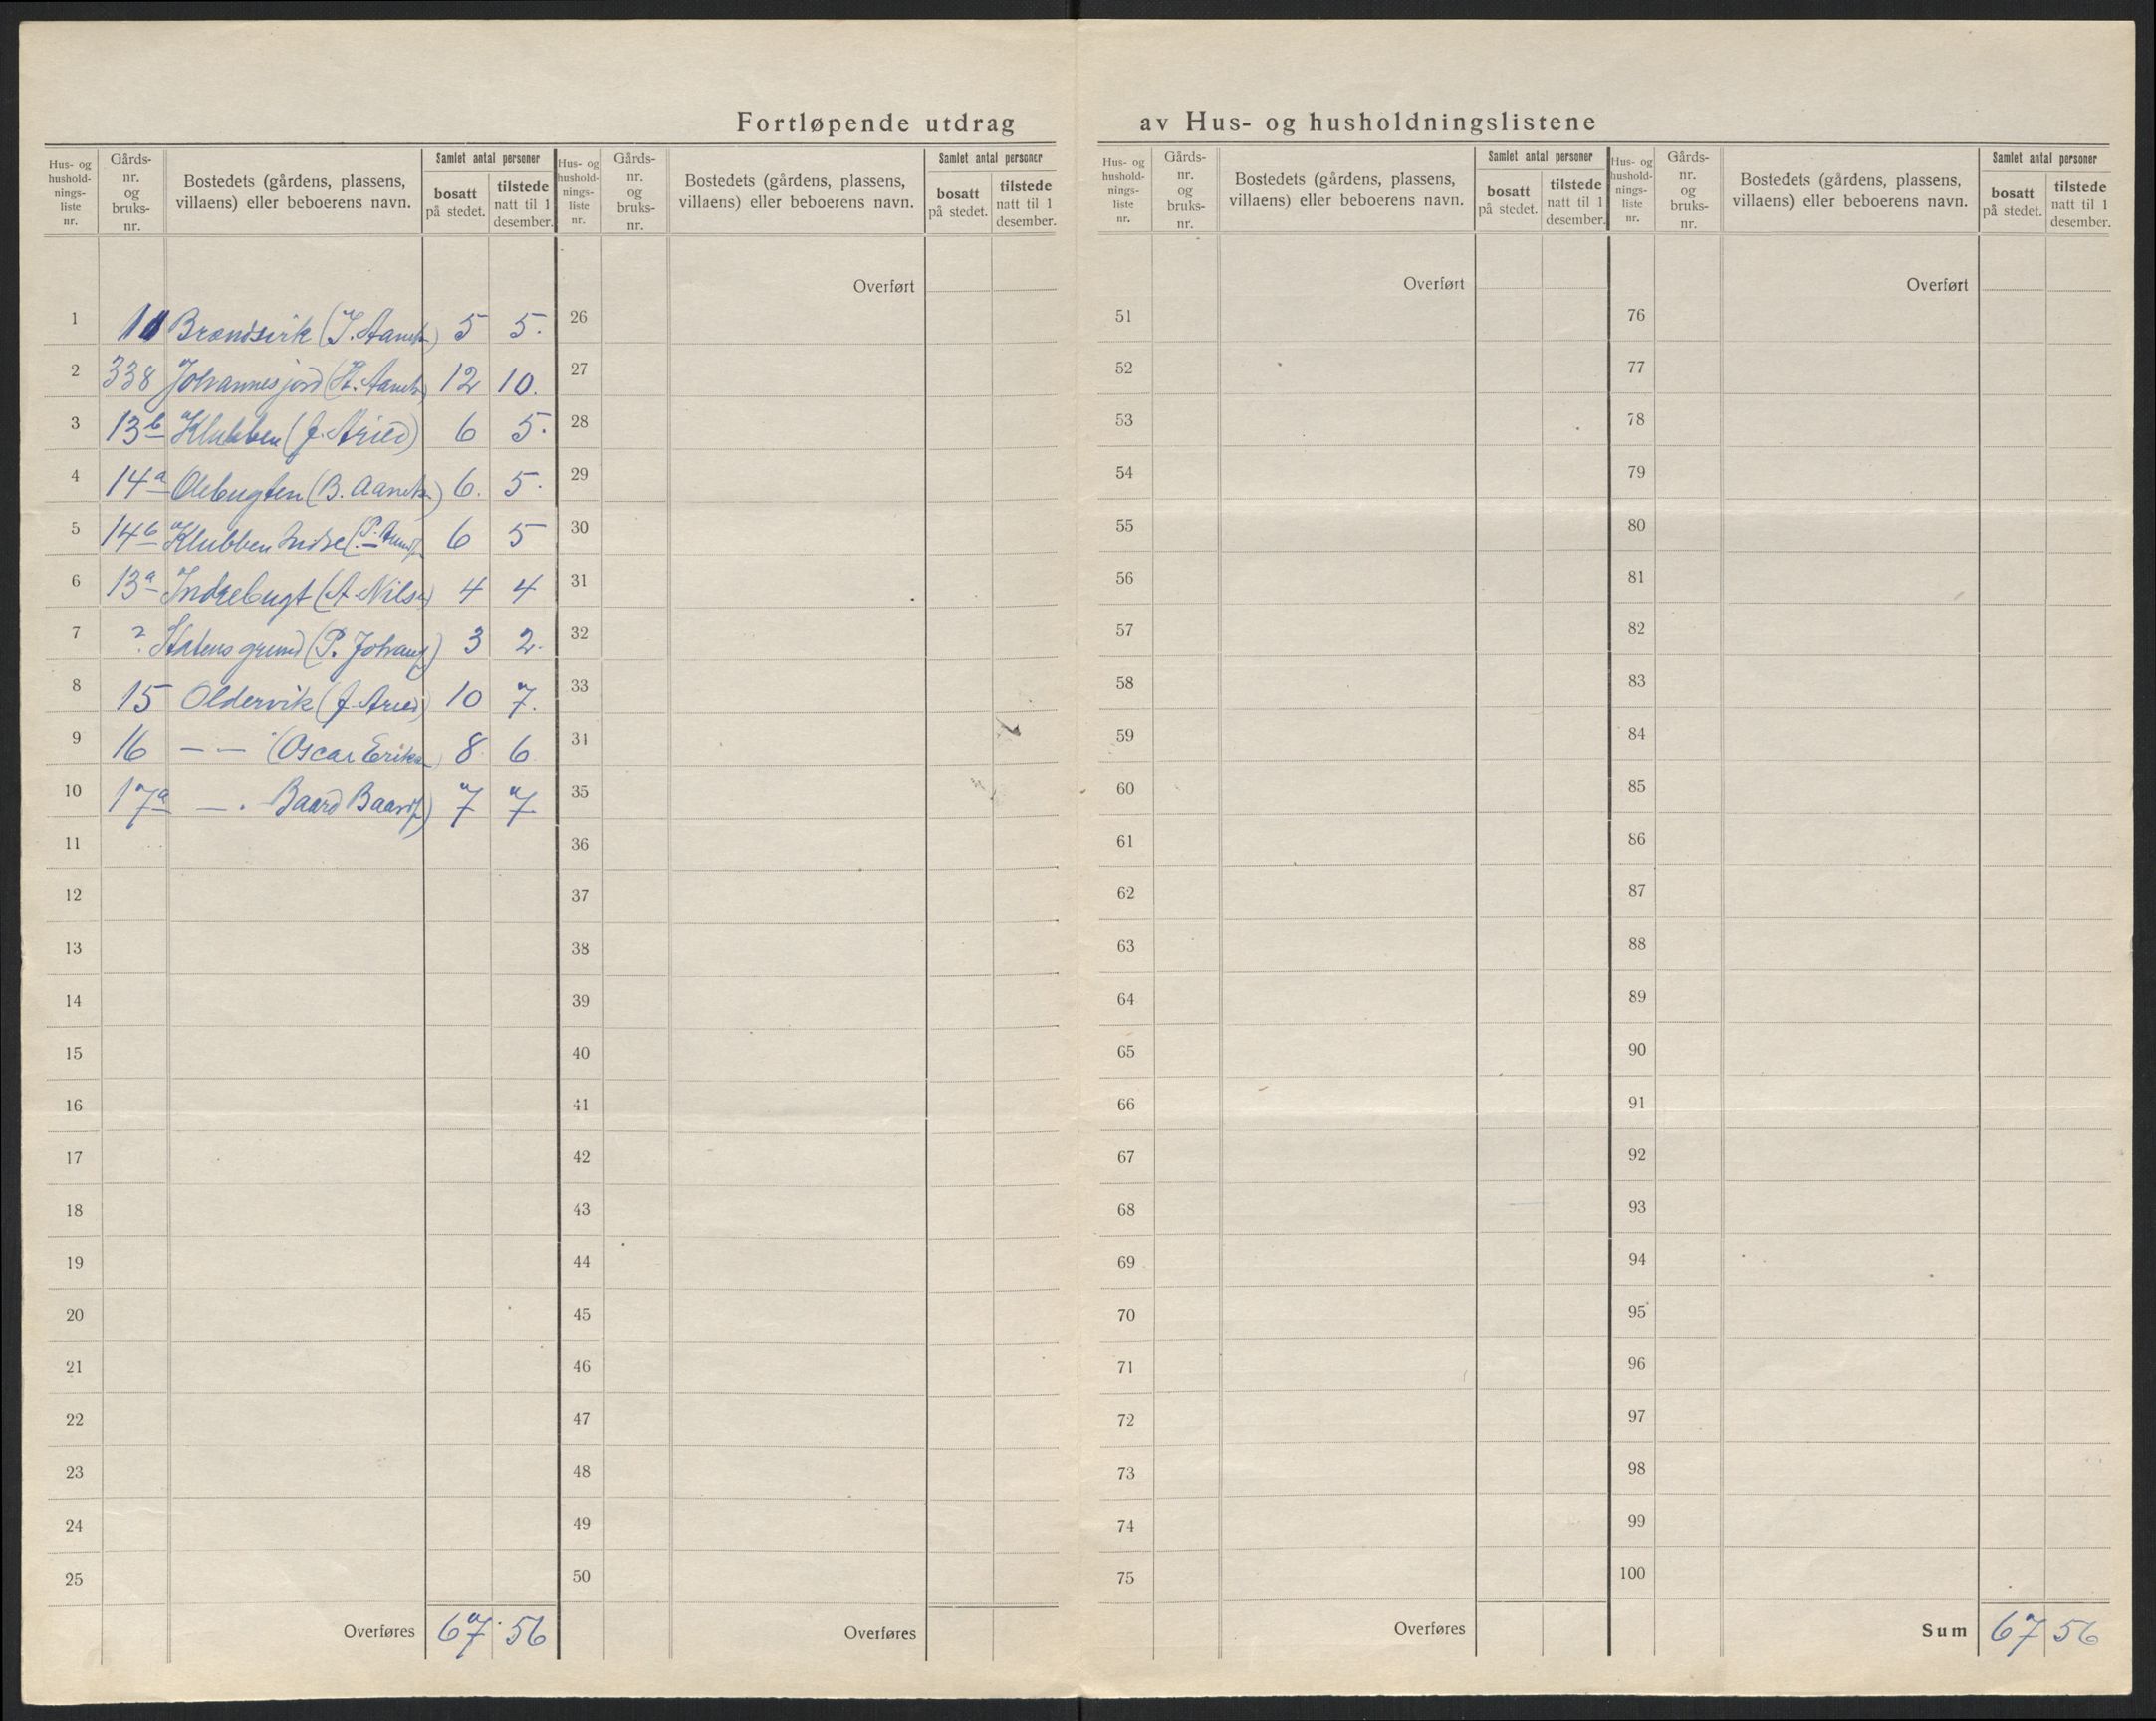 Fortløpende utdrag av Hus- og husholdningslistene
Hus- og hushold-nings-liste nr.
Gårds-nr. og bruks-nr.
Bostedets (gårdens, plassens, villaens) eller beboerens navn.
Samlet antal personer
bosatt på stedet.
tilstede natt til 1 desember.
1 11 Brændsvik (J. 5 5.
2 338 Johannesjord 12 10.
3 13b Klubben (J. Aried) 6 5.
4 14a Olebugten (B. 6. 5.
5 14b Klubben Indre (P. 6 5
6 13a Indrebugt (A Nils 4 4
7 ? Statens grund (P. Johans 3 2.
8 15 Oldervik (J. Aried) 10 7.
9 16 — — (Oscar Eriks 8 6
10 17a — . Baard Baards) 7 7
11
12
13
14
15
16
17
18
19
20
21
22
23
24
25
Overføres 67 56
Hus- og hushold-nings-liste nr.
Gårds-nr. og bruks-nr.
Bostedets (gårdens, plassens, villaens) eller beboerens navn.
Samlet antal personer
bosatt på stedet.
tilstede natt til 1 desember.
Overført
26
27
28
29
30
31
32
33
31
35
36
37
38
39
40
41
42
43
44
45
46
47
48
49
50
Overføres
Hus- og hushold-nings-liste nr.
Gårds-nr. og bruks-nr.
Bostedets (gårdens, plassens, villaens) eller beboerens navn.
Samlet antal personer
bosatt på stedet.
tilstede natt til 1 desember.
Overført
51
52
53
54
55
56
57
58
59
60
61
62
63
64
65
66
67
68
69
70
71
72
73
74
75
Overføres
Hus- og hushold-nings-liste nr.
Gårds-nr. og bruks-nr.
Bostedets (gårdens, plassens, villaens) eller beboerens navn.
Samlet antal personer
bosatt på stedet.
tilstede natt til 1 desember.
Overført
76
77
78
79
80
81
82
83
84
85
86
87
88
89
90
91
92
93
94
95
96
97
98
99
100
Sum 67 56